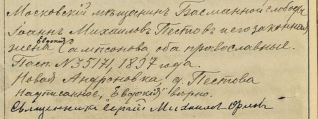 Московскій мѣщанинъ Басманной слободы
Іоаннъ Михайловъ Пестовъ и его законная
жена Евдокія Сампсонова оба православные.
Пасп. № 35171, 1897 года.
Новая Андроновка, д. Пестова
Надписанное, Евдокія вѣрно.
Священникъ Сергій Михайловъ Орловъ